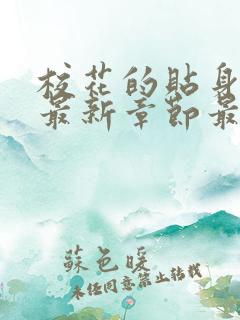 校花的贴身
最新章节最
蘇色暖
未经同意禁止转载